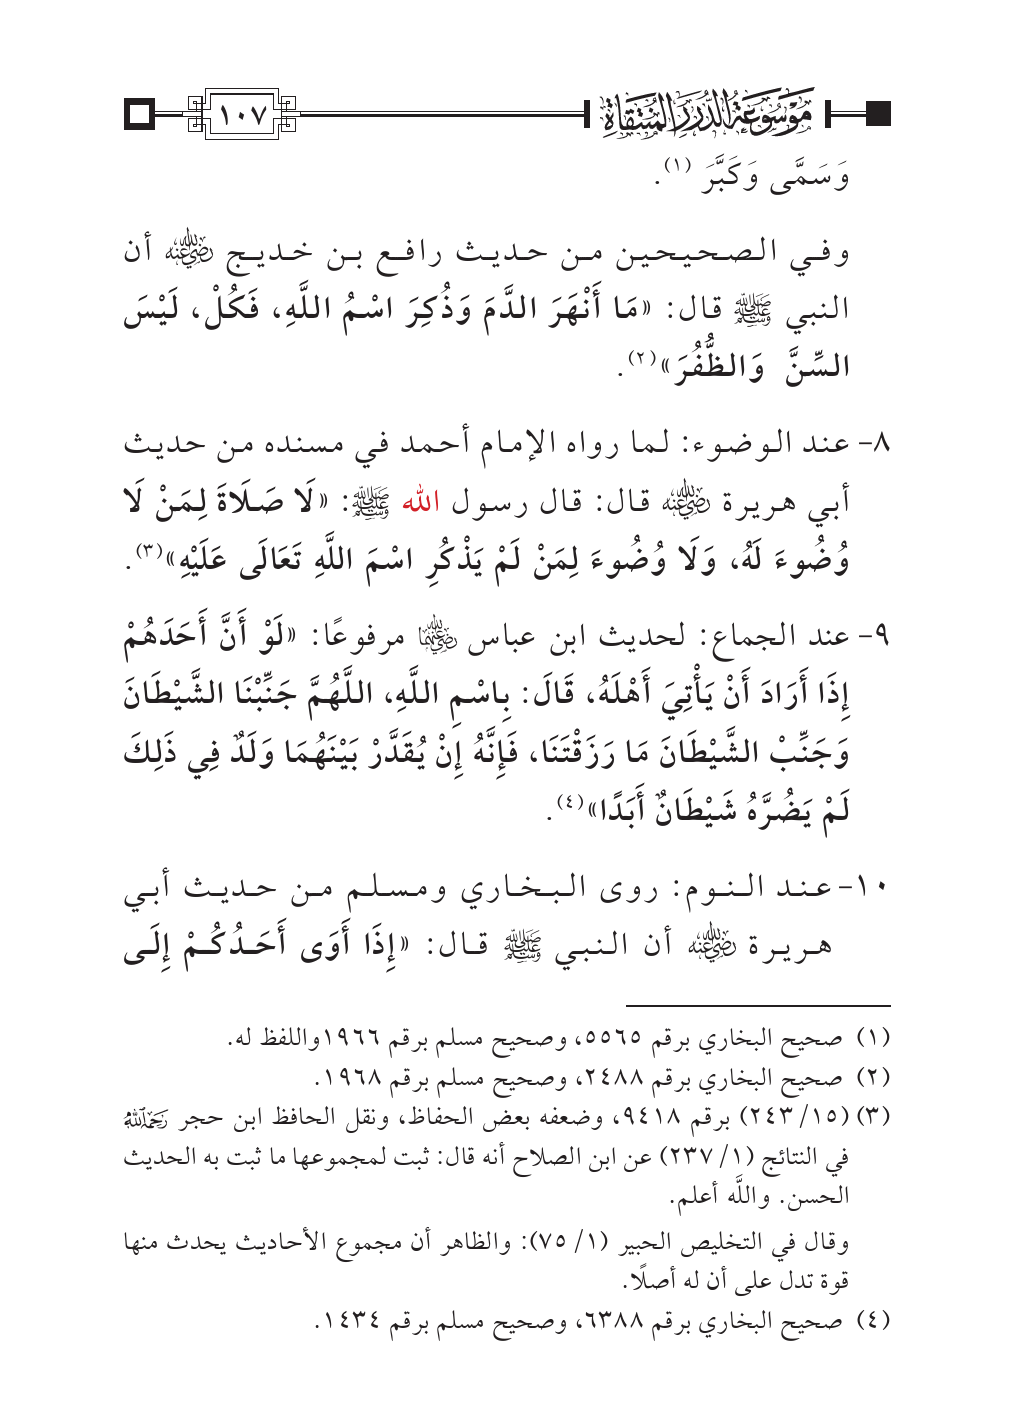 موسوعة الدرر المنتقاة ١٠٧
وَسَمَّى وَكَبَّرَ (١).
وفي الصحيحين من حديث رافع بن خديج رضي الله عنه أن
النبي ﷺ قال: «مَا أَنْهَرَ الدَّمَ وَذُكِرَ اسْمُ اللَّهِ، فَكُلْ، لَيْسَ
السِّنَّ وَالظُّفُرَ»(٢).
٨- عند الوضوء: لما رواه الإمام أحمد في مسنده من حديث
أبي هريرة رضي الله عنه قال: قال رسول الله ﷺ: «لَا صَلَاةَ لِمَنْ لَا
وُضُوءَ لَهُ، وَلَا وُضُوءَ لِمَنْ لَمْ يَذْكُرِ اسْمَ اللَّهِ تَعَالَى عَلَيْهِ»(٣).
٩- عند الجماع: لحديث ابن عباس رضي الله عنهما مرفوعًا: «لَوْ أَنَّ أَحَدَهُمْ
إِذَا أَرَادَ أَنْ يَأْتِيَ أَهْلَهُ، قَالَ: بِاسْمِ اللَّهِ، اللَّهُمَّ جَنِّبْنَا الشَّيْطَانَ
وَجَنِّبْ الشَّيْطَانَ مَا رَزَقْتَنَا، فَإِنَّهُ إِنْ يُقَدَّرْ بَيْنَهُمَا وَلَدٌ فِي ذَلِكَ
لَمْ يَضُرَّهُ شَيْطَانٌ أَبَدًا»(٤).
١٠- عند النوم: روى البخاري ومسلم من حديث أبي
هريرة رضي الله عنه أن النبي ﷺ قال: «إِذَا أَوَى أَحَدُكُمْ إِلَى
(١) صحيح البخاري برقم ٥٥٦٥، وصحيح مسلم برقم ١٩٦٦واللفظ له.
(٢) صحيح البخاري برقم ٢٤٨٨، وصحيح مسلم برقم ١٩٦٨.
(٣) (١٥/ ٢٤٣) برقم ٩٤١٨، وضعفه بعض الحفاظ، ونقل الحافظ ابن حجر رحمه الله
في النتائج (١/ ٢٣٧) عن ابن الصلاح أنه قال: ثبت لمجموعها ما ثبت به الحديث
الحسن. واللَّه أعلم.
وقال في التخليص الحبير (١/ ٧٥): والظاهر أن مجموع الأحاديث يحدث منها
قوة تدل على أن له أصلًا.
(٤) صحيح البخاري برقم ٦٣٨٨، وصحيح مسلم برقم ١٤٣٤.